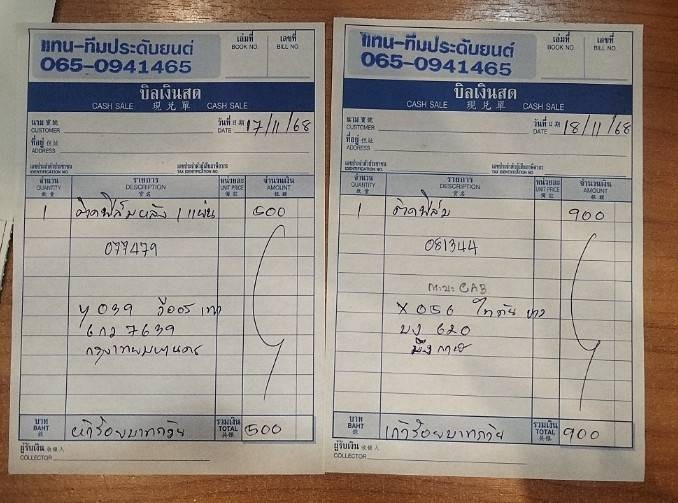 แทน-ทีมประดับยนต์
065-0941465
เล่มที่
BOOK NO.
เลขที่
BILL NO.
บิลเงินสด
CASH SALE 現兌單 CASH SALE
นาม
CUSTOMER
วันที่
DATE 17/11/68
ที่อยู่
ADDRESS
เลขประจำตัวประชาชน
IDENTIFICATION NO.
เลขประจำตัวผู้เสียภาษีอากร
TAX IDENTIFICATION NO.
จำนวน
QUANTITY
รายการ
DESCRIPTION
หน่วยละ
UNIT PRICE
จำนวนเงิน
AMOUNT
1 ติดฟิล์มหลัง 1 แผ่น 500
077479
ฯ 039 วีออส เทา
6กว 7639
กรุงเทพมหานคร
บาท
BAHT
ห้าร้อยบาทถ้วน
รวมเงิน
TOTAL
500
ผู้รับเงิน
COLLECTOR
แทน-ทีมประดับยนต์
065-0941465
เล่มที่
BOOK NO.
เลขที่
BILL NO.
บิลเงินสด
CASH SALE 現兌單 CASH SALE
นาม
CUSTOMER
วันที่
DATE 18/11/68
ที่อยู่
ADDRESS
เลขประจำตัวประชาชน
IDENTIFICATION NO.
เลขประจำตัวผู้เสียภาษีอากร
TAX IDENTIFICATION NO.
จำนวน
QUANTITY
รายการ
DESCRIPTION
หน่วยละ
UNIT PRICE
จำนวนเงิน
AMOUNT
1 ติดฟิล์ม 900
081344
กะบะ CAB
X 056 ไทตัน ขาว
บง 620
บึงกาฬ
บาท
BAHT
เก้าร้อยบาทถ้วน
รวมเงิน
TOTAL
900
ผู้รับเงิน
COLLECTOR